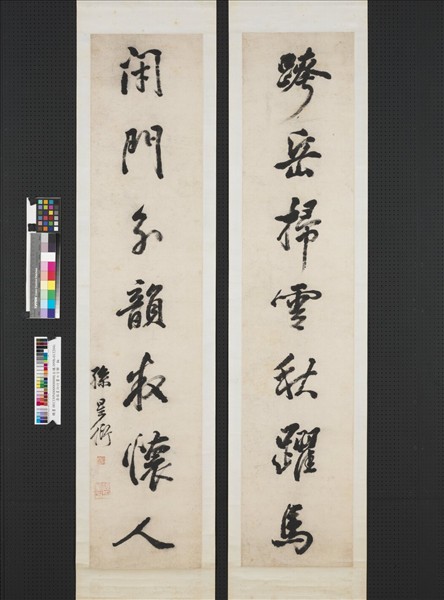 跨岳掃雲秋躍馬
閉門分韻夜懷人
孫星衍